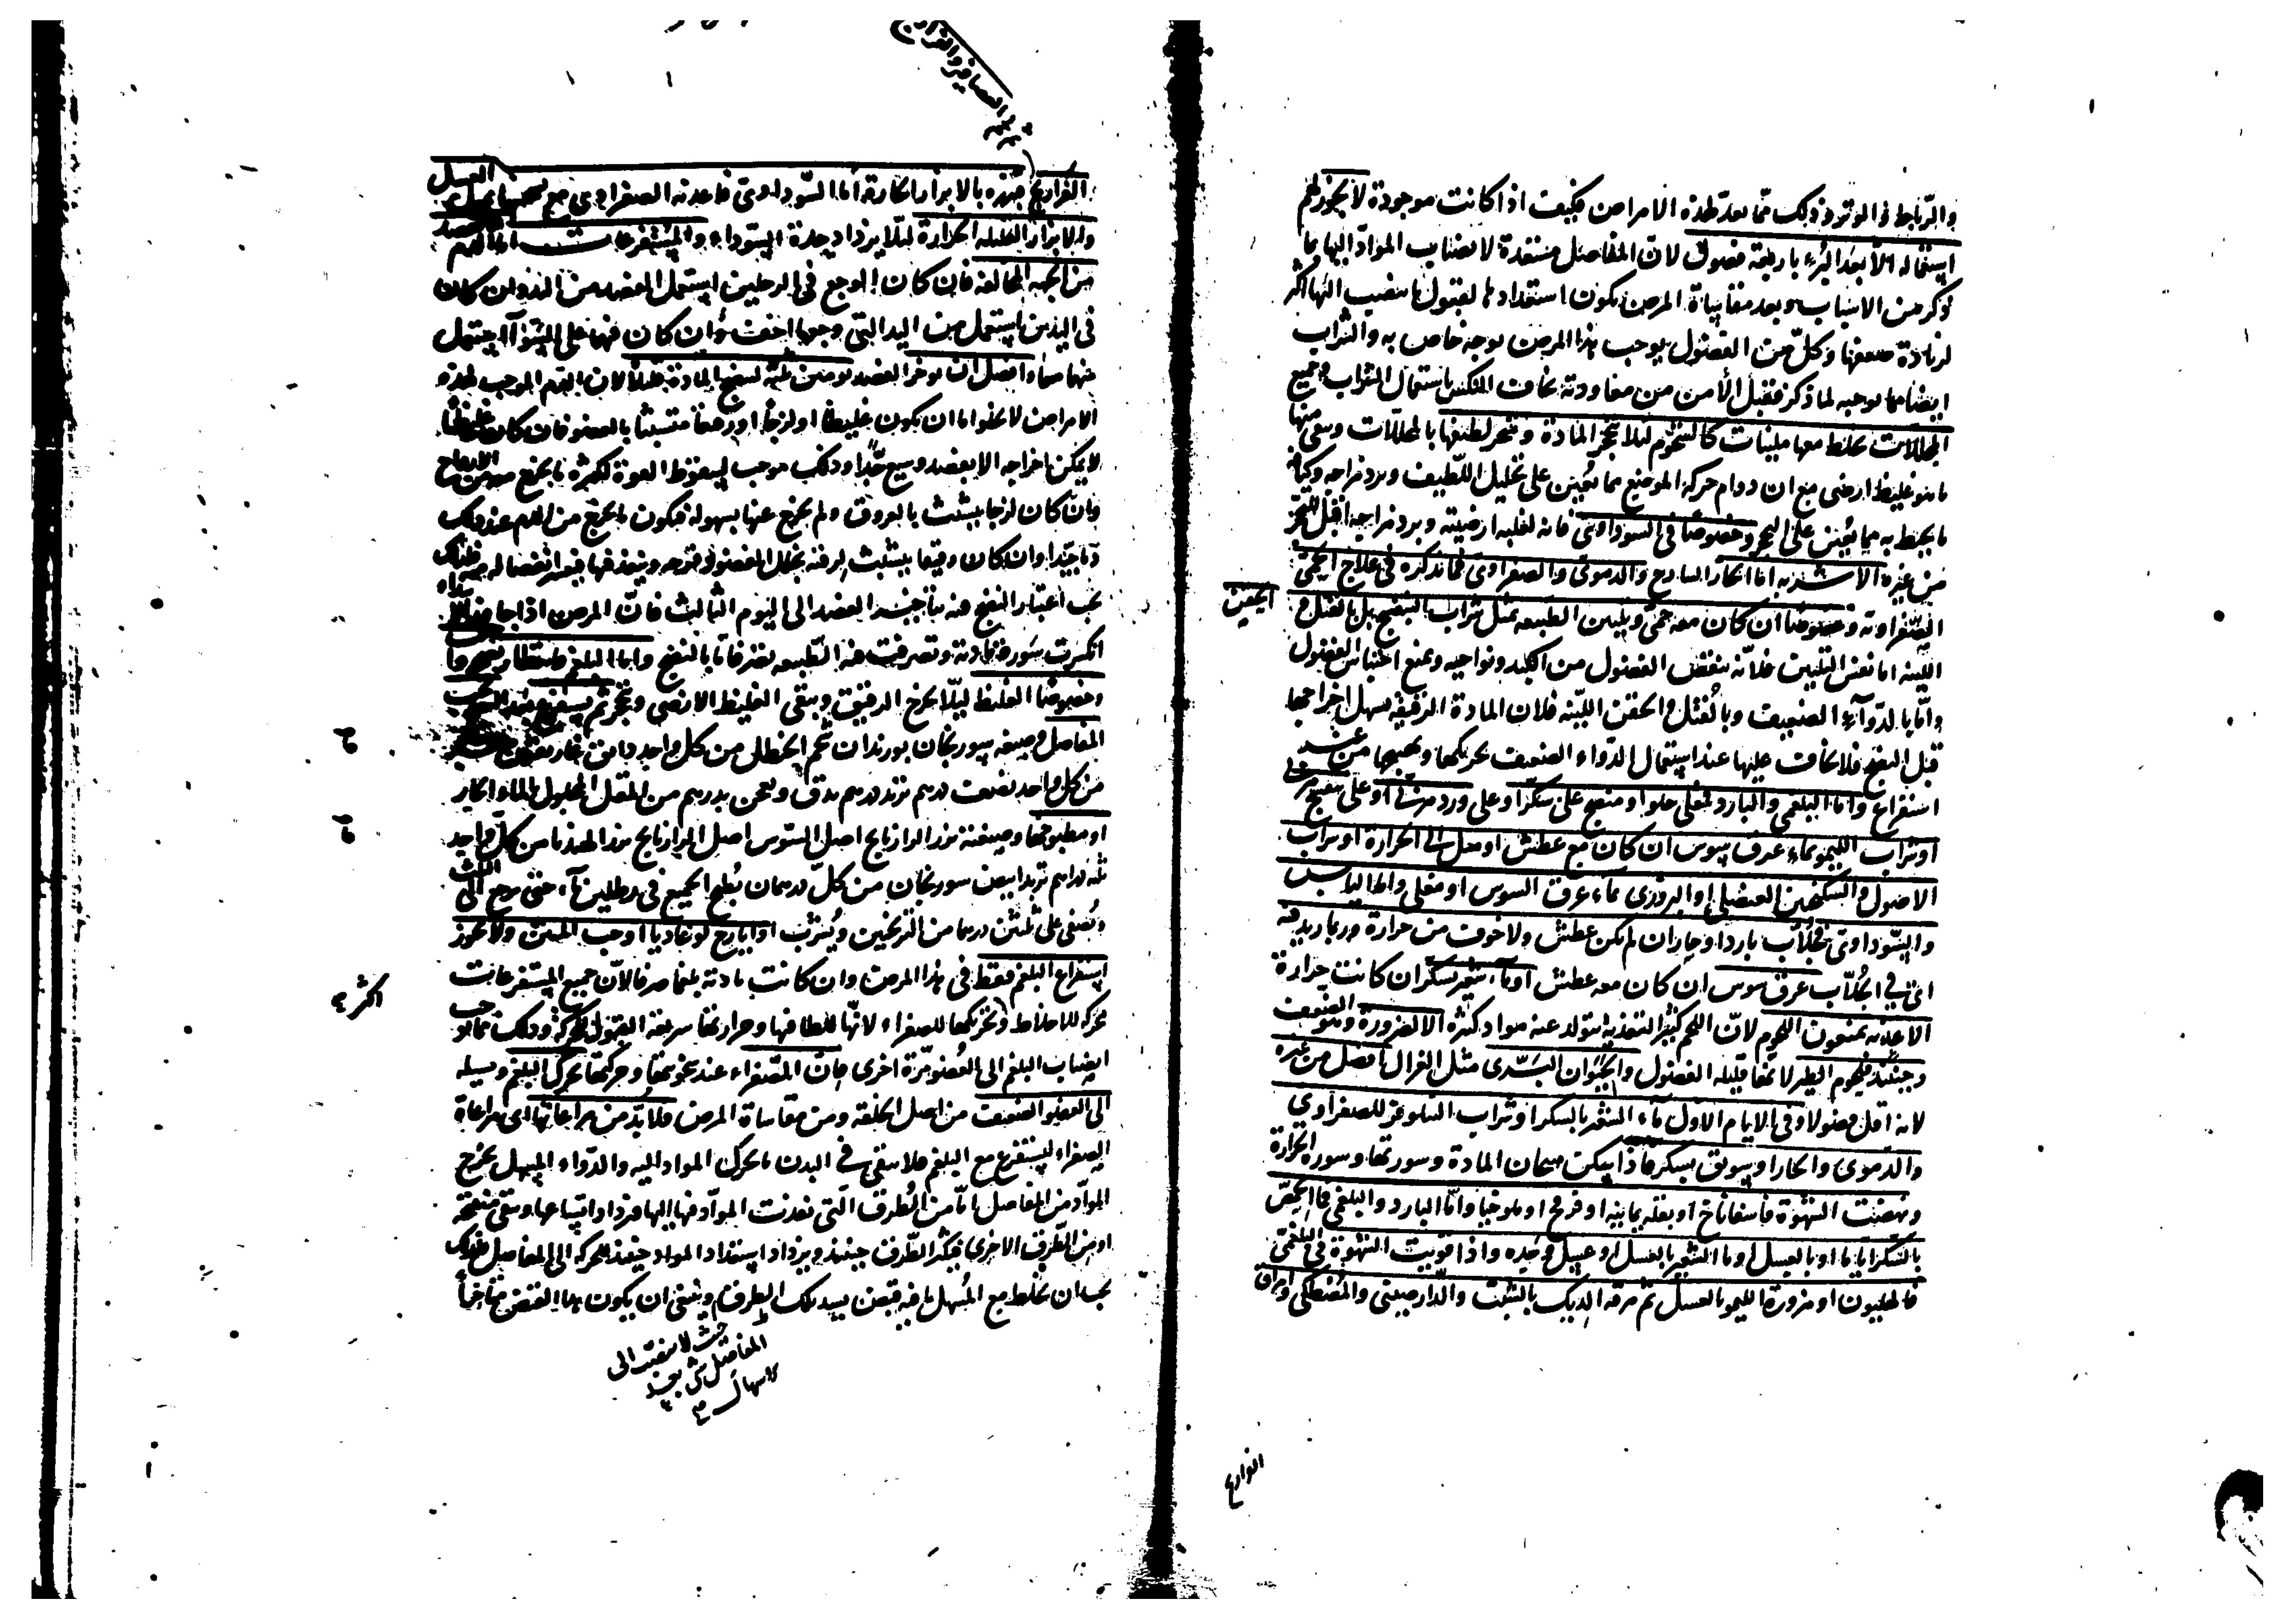 والرباط والوتر وذلك مما يعد لهذه الامراض فكيف اذا كانت موجودة لا يجوز لهم
استعماله الا بعد البرء باربعة فصول لان المفاصل مستعدة لانصباب المواد اليها لما
ذكر من الاسباب وبعد مقاساة المرض يكون استعدادها لقبول ما ينصب اليها اكثر
لزيادة ضعفها وكل من الفصول يوجب هذا المرض بوجه خاص به والشراب
ايضا مما يوجبه لما ذكر فقبل الامن من معاودته يخاف النكس باستعمال الشراب وجميع
المحللات يخلط معها ملينات كالشحوم لئلا يتحجر المادة ويتحلل لطيفها بالمحللات ويبقى منها
ما هو غليظ ارضى مع ان دوام حركة الموضع مما يعين على تحليل اللطيف وبرد مزاجه
ما يحيط به مما يعين على التحجر وخصوصا فى السوداوى فانه لغلبة ارضيته وبرد مزاجه اقبل للتحجر
من غيره اما الحار الساذج والدموى والصفراوى فما نذكره فى علاج الحمى
الصفراوية وخصوصا ان كان معه حمى ويلين الطبيعة بمثل شراب البنفسج بل بالفتل و
الحقن
اللينة اما نفس التليين فلانه ينقص الفضول من الكبد ونواحيه ويمنع احتباس الفضول
واما بالدواء الضعيف وبالفتل والحقن اللينة فلان المادة الرقيقة يسهل اخراجها
قبل النضج فلا يخاف عليها عند استعمال الدواء الضعيف تحريكها وتهييجها من غير
استفراغ واما البلغمى والبارد فمغلى حلو او منضج على سكر او على ورد مربى او على بنفسج مربى
او شراب الليمو بماء عرق سوس ان كان مع عطش او ميل الى الحرارة او شراب
الاصول والسكنجبين العنصلى او البزورى بماء عرق السوس او مغلى واما اليابس
والسوداوى فجلاب باردا وحار ان لم يكن عطش ولا خوف من حرارة وربما زيد فيه
اى فى الجلاب عرق سوس ان كان معه عطش او ماء شعير بسكر ان كانت حرارة
الاغذية يمنعون اللحوم لان اللحم كثير التغذية يتولد عنه مواد كثيرة الا لضرورة وهو الضعف
وحينئذ فلحوم الطير لانها قليلة الفضول والحيوان البرى مثل الغزال افضل من غيره
لانه اقل فضولا وفى الايام الاول ماء الشعير بالسكر او شراب النيلوفر للصفراوى
والدموى والحار او سويق بسكر فاذا سكن هيجان المادة وسورتها وسورة الحرارة
ونهضت الشهوة فاسفاناخ او بقلة يمانية او قرع او ملوخيا واما البارد والبلغمى فماء الحمص
بالسكر اياما او بالعسل او ماء الشعير بالعسل او عسل وحده واذا قويت الشهوة فى البلغمى
فالهليون او مزورة الليمو بالعسل ثم مرقة الديك بالشبت والدارصينى والمصطكى وامراق
الفراريج
العصافير والفراريج
الفراريج مبزرة بالابزار الحارة اما السوداوى فاغذية الصفراوى مع
وبالابزار القليلة الحرارة لئلا يزداد حدة السوداء والمستفرغات اما الدم
من الجهة المخالفة فان كان الوجع فى الرجلين استعمل الفصد من اليد وان كان
فى اليدين استعمل من اليد التى وجعها اخف وان كان فيها على السواء استعمل
منها معا وافضل ان يؤخر الفصد يومين ثلثة لنضج المادة قليلا لان الدم الموجب لهذه
الامراض لا يخلو اما ان يكون غليظا او لزجا او رقيقا متشبثا بالعضو فان كان غليظا
لا يمكن اخراجه الا بفصد وسيع جدا وذلك موجب لسقوط القوة لكثرة ما يخرج من الارواح
وان كان لزجا يتشبث بالعروق ولم يخرج عنها بسهولة فيكون ما يخرج من الدم عند ذلك
دما جيدا وان كان رقيقا يتشبث لرقته بخلل العضو وينفذ فيها فيعسر انفصاله
يجب اعتبار النضج فيه بتاخير الفصد الى اليوم الثالث فان المرض اذا جاوز
انكسرت سورة مادته وتصرفت فيه الطبيعة تصرفا تاما بالنضج واما البلغم فانتظار نضجه
وخصوصا الغليظ لئلا يخرج الرقيق ويبقى الغليظ الارضى ويتحجر ثم يستفرغ
المفاصل وصفته سورنجان بوزيدان شحم الحنظل من كل واحد دانق
من كل واحد نصف درهم تربد درهم يدق ويعجن بدرهم من المقل المحلول بالماء الحار
او مطبوخها وصفته بزر الرازيانج اصل السوس اصل الرازيانج بزر الهندبا من كل واحد
ثلثة دراهم تربد ابيض سورنجان من كل درهمان يطبخ الجميع فى رطلين ماء حتى يرجع الى الثلث
ويصفى على ثلثين درهما من الترنجبين ويشرب او ايارج لوغاديا او حب المنتن ولا يجوز
استفراغ البلغم فقط فى هذا المرض وان كانت مادته بلغما صرفا لان جميع المستفرغات
محركة للاخلاط وتحريكها للصفراء لانها للطافتها وحرارتها سريعة القبول للحركة وذلك مما
اكثر
انصباب البلغم الى العضو مرة اخرى فان الصفراء عند تموجها وحركتها تحرك البلغم وتسيله
الى العضو الضعيف من اصل الخلقة ومن مقاساة المرض فلا بد من مراعاتها اى مراعاة
الصفراء ليستفرغ مع البلغم فلا يبقى فى البدن ما يحرك المواد اليه والدواء المسهل يخرج
المواد من المفاصل اما من الطرق التى نفذت المواد فيها اليها فيزداد اتساعها ويبقى منفتحة
او من الطرق الاخرى فيكثر الطرق حينئذ ويزداد استعداد المواد حينئذ للحركة الى المفاصل فلذلك
يجب ان يخلط مع المسهل ما فيه قبض يسد تلك الطرق وينبغى ان يكون هذا القبض متاخرا
حيث لا ينصب الى
المفاصل شى بعد
الاسهال